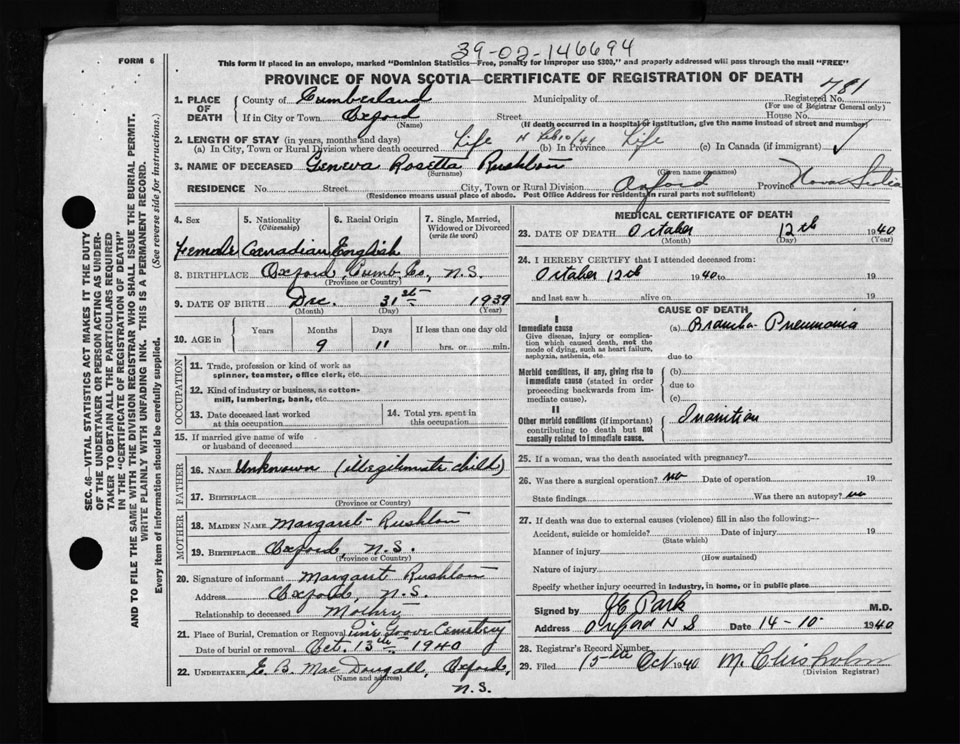 39-02-146694
FORM 6
This form if placed in an envelope, marked "Dominion Statistics—Free, penalty for improper use $300," and properly addressed will pass through the mail "FREE"
PROVINCE OF NOVA SCOTIA—CERTIFICATE OF REGISTRATION OF DEATH
SEC. 46—VITAL STATISTICS ACT MAKES IT THE DUTY
OF THE UNDERTAKER OR PERSON ACTING AS UNDER-
TAKER TO OBTAIN ALL THE PARTICULARS REQUIRED
IN THE "CERTIFICATE OF REGISTRATION OF DEATH"
AND TO FILE THE SAME WITH THE DIVISION REGISTRAR WHO SHALL ISSUE THE BURIAL PERMIT.
WRITE PLAINLY WITH UNFADING INK. THIS IS A PERMANENT RECORD.
Every item of information should be carefully supplied. (See reverse side for instructions.)
1. PLACE OF DEATH
County of Cumberland Municipality of Registered No. 781
(For use of Registrar General only)
If in City or Town Oxford St. House No.
(Name) (If death occurred in a hospital or institution, give the name instead of street and number)
2. LENGTH OF STAY (in years, months and days)
(a) In City, Town or Rural Division where death occurred Life (b) In Province Life (c) In Canada (if immigrant) ✓
3. NAME OF DECEASED Geneva Rosetta Rushton
(Surname) (Given name or names)
RESIDENCE No. Street City, Town or Rural Division Oxford Province Nova Scotia
(Residence means usual place of abode. Post Office Address for residents in rural parts not sufficient)
4. Sex 5. Nationality (Citizenship) 6. Racial Origin 7. Single, Married, Widowed or Divorced (write the word)
Female Canadian English
8. BIRTHPLACE Oxford, Cumb. Co., N.S.
(Province or Country)
9. DATE OF BIRTH Dec. 31st 1939
(Month) (Day) (Year)
10. AGE in Years Months Days If less than one day old
9 11 hrs. or min.
OCCUPATION
11. Trade, profession or kind of work as
spinner, teamster, office clerk, etc.
12. Kind of industry or business, as cotton-
mill, lumbering, bank, etc.
13. Date deceased last worked
at this occupation
14. Total yrs. spent in
this occupation
15. If married give name of wife
or husband of deceased
FATHER
16. NAME Unknown (illegitimate child)
17. BIRTHPLACE
(Province or Country)
MOTHER
18. MAIDEN NAME Margaret Rushton
19. BIRTHPLACE Oxford, N.S.
(Province or Country)
20. Signature of informant Margaret Rushton
Address Oxford, N.S.
Relationship to deceased Mother
21. Place of Burial, Cremation or Removal Pine Grove Cemetery
Date of burial or removal Oct. 13th 1940
22. UNDERTAKER E. B. MacDougall, Oxford,
(Name and address)
N.S.
MEDICAL CERTIFICATE OF DEATH
23. DATE OF DEATH October 12th 1940
(Month) (Day) (Year)
24. I HEREBY CERTIFY that I attended deceased from:
October 12th 1940 to 19
and last saw h alive on 19
CAUSE OF DEATH
I
Immediate cause (a) Broncho-Pneumonia
Give disease, injury or complica-
tion which caused death, not the
mode of dying, such as heart failure,
asphyxia, asthenia, etc. due to
Morbid conditions, if any, giving rise to (b)
immediate cause (stated in order due to
proceeding backwards from im-
mediate cause). (c)
II
Other morbid conditions (if important) Inanition
contributing to death but not
causally related to immediate cause.
25. If a woman, was the death associated with pregnancy?
26. Was there a surgical operation? No Date of operation 19
State findings Was there an autopsy? no
27. If death was due to external causes (violence) fill in also the following:—
Accident, suicide or homicide? Date of injury 19
(State which)
Manner of injury
(How sustained)
Nature of injury
Specify whether injury occurred in industry, in home, or in public place
Signed by J E Park M.D.
Address Oxford N S Date 14-10- 1940
28. Registrar's Record Number
29. Filed 15th Oct 1940 M Chisholm
(Division Registrar)